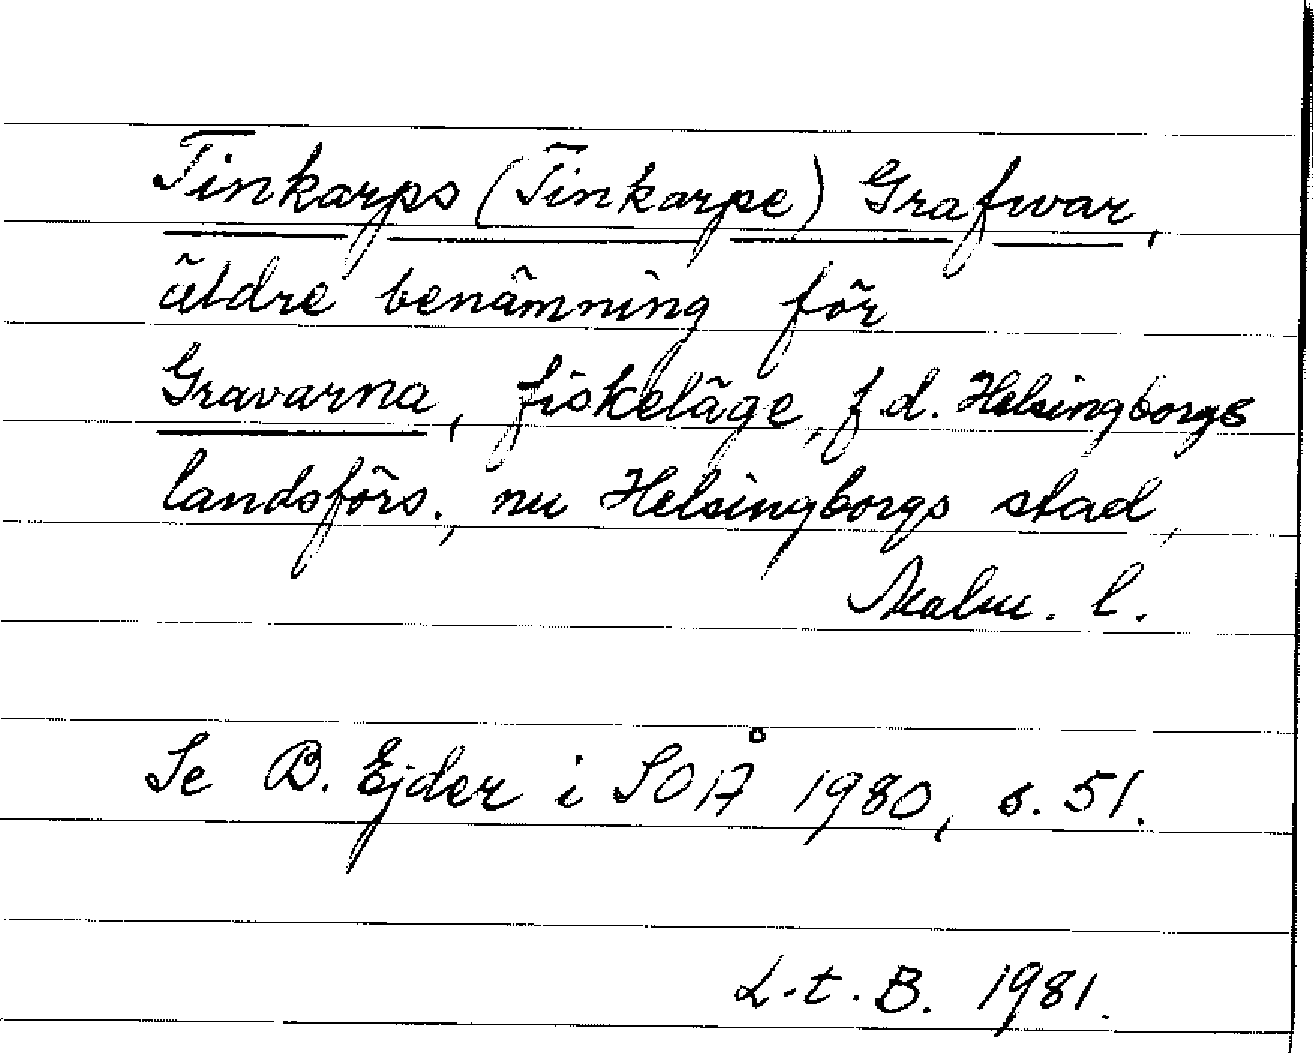 Tinkarps (Tinkarpe) Grafwar,
äldre benämning för
Gravarna, fiskeläge, f d. Helsingborgs
landsförs., nu Helsingborgs stad,
Malm. l.
Se B. Ejder i SOÅ 1980, s. 51.
L.t.B. 1981.